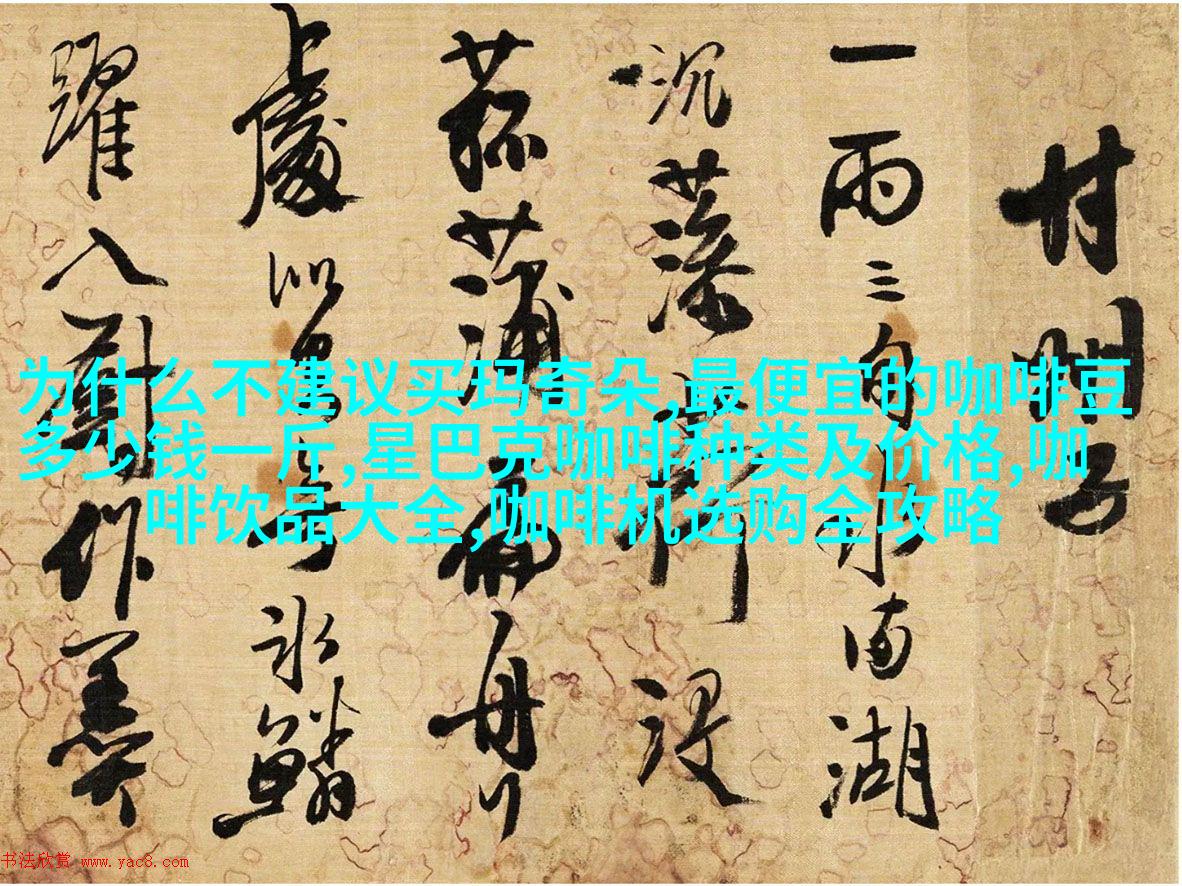 甘
一雨三旬水南湖
沉没
菰蒲扁舟
上處冰鱗
躍入作羹
为什么不建议买玛奇朵,最便宜的咖啡豆
多少钱一斤,星巴克咖啡种类及价格,咖
啡饮品大全,咖啡机选购全攻略
书法欣赏 www.yac8.com